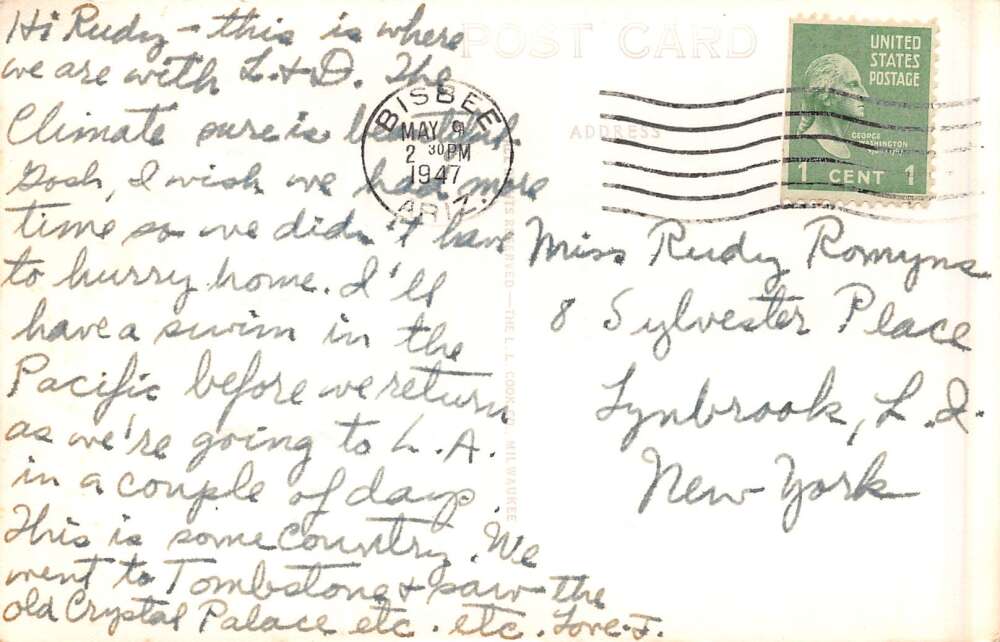 POST CARD
ADDRESS
Hi Rudy - this is where
we are with L. & D. The
Climate sure is beautiful.
Gosh, I wish we had more
time so we didn't have
to hurry home. I'll
have a swim in the
Pacific before we return
as we're going to L.A.
in a couple of days.
This is some Country. We
went to Tombstone & saw the
old Crystal Palace etc. etc. Love - J.
BISBEE
MAY 9
2 30 PM
1947
ARIZ.
UNITED
STATES
POSTAGE
GEORGE
WASHINGTON
1 CENT 1
Miss Rudy Romyns
8 Sylvester Place
Lynbrook, L.I.
New York
RESERVED—THE L. L. COOK CO. MILWAUKEE